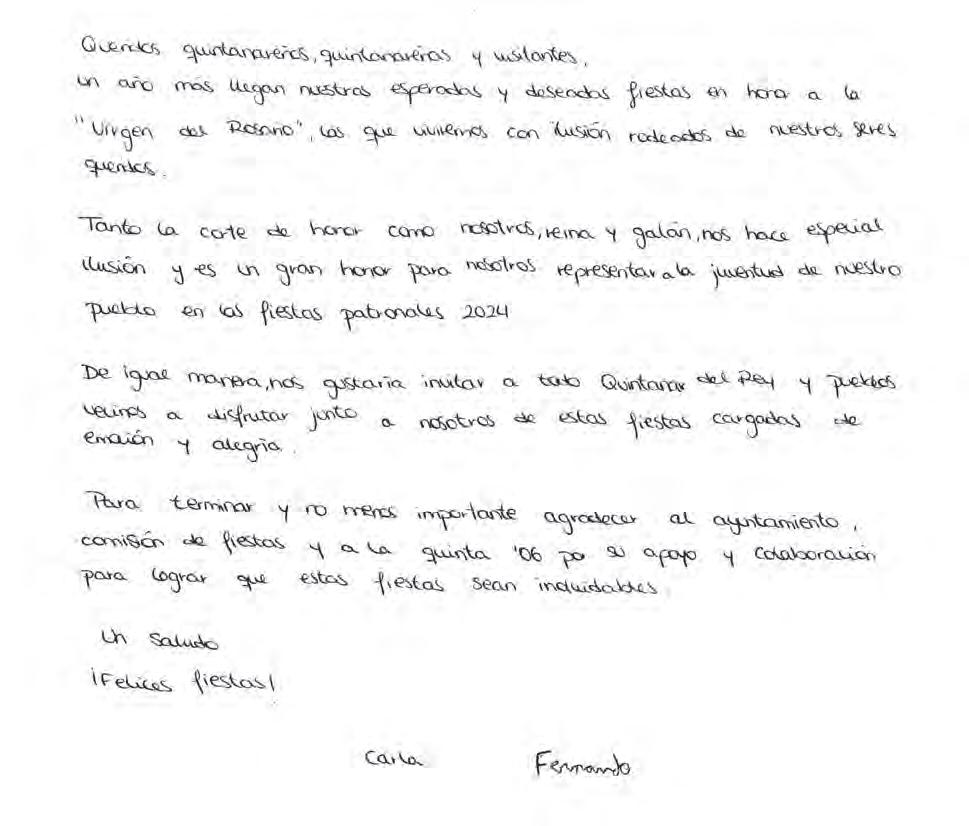 Queridos quintanareños, quintanareñas y visitantes,
un año más llegan nuestras esperadas y deseadas fiestas en honor a la
"Virgen del Rosario", las que viviremos con ilusión rodeados de nuestros seres
queridos.
Tanto la corte de honor como nosotros, reina y galán, nos hace especial
ilusión y es un gran honor para nosotros representar a la juventud de nuestro
pueblo en las fiestas patronales 2024
De igual manera, nos gustaría invitar a todo Quintanar del Rey y pueblos
vecinos a disfrutar junto a nosotros de estas fiestas cargadas de
emoción y alegría.
Para terminar y no menos importante agradecer al ayuntamiento,
comisión de fiestas y a la quinta '06 por su apoyo y colaboración
para lograr que estas fiestas sean inolvidables.
Un saludo
¡Felices fiestas!
Carla Fernando